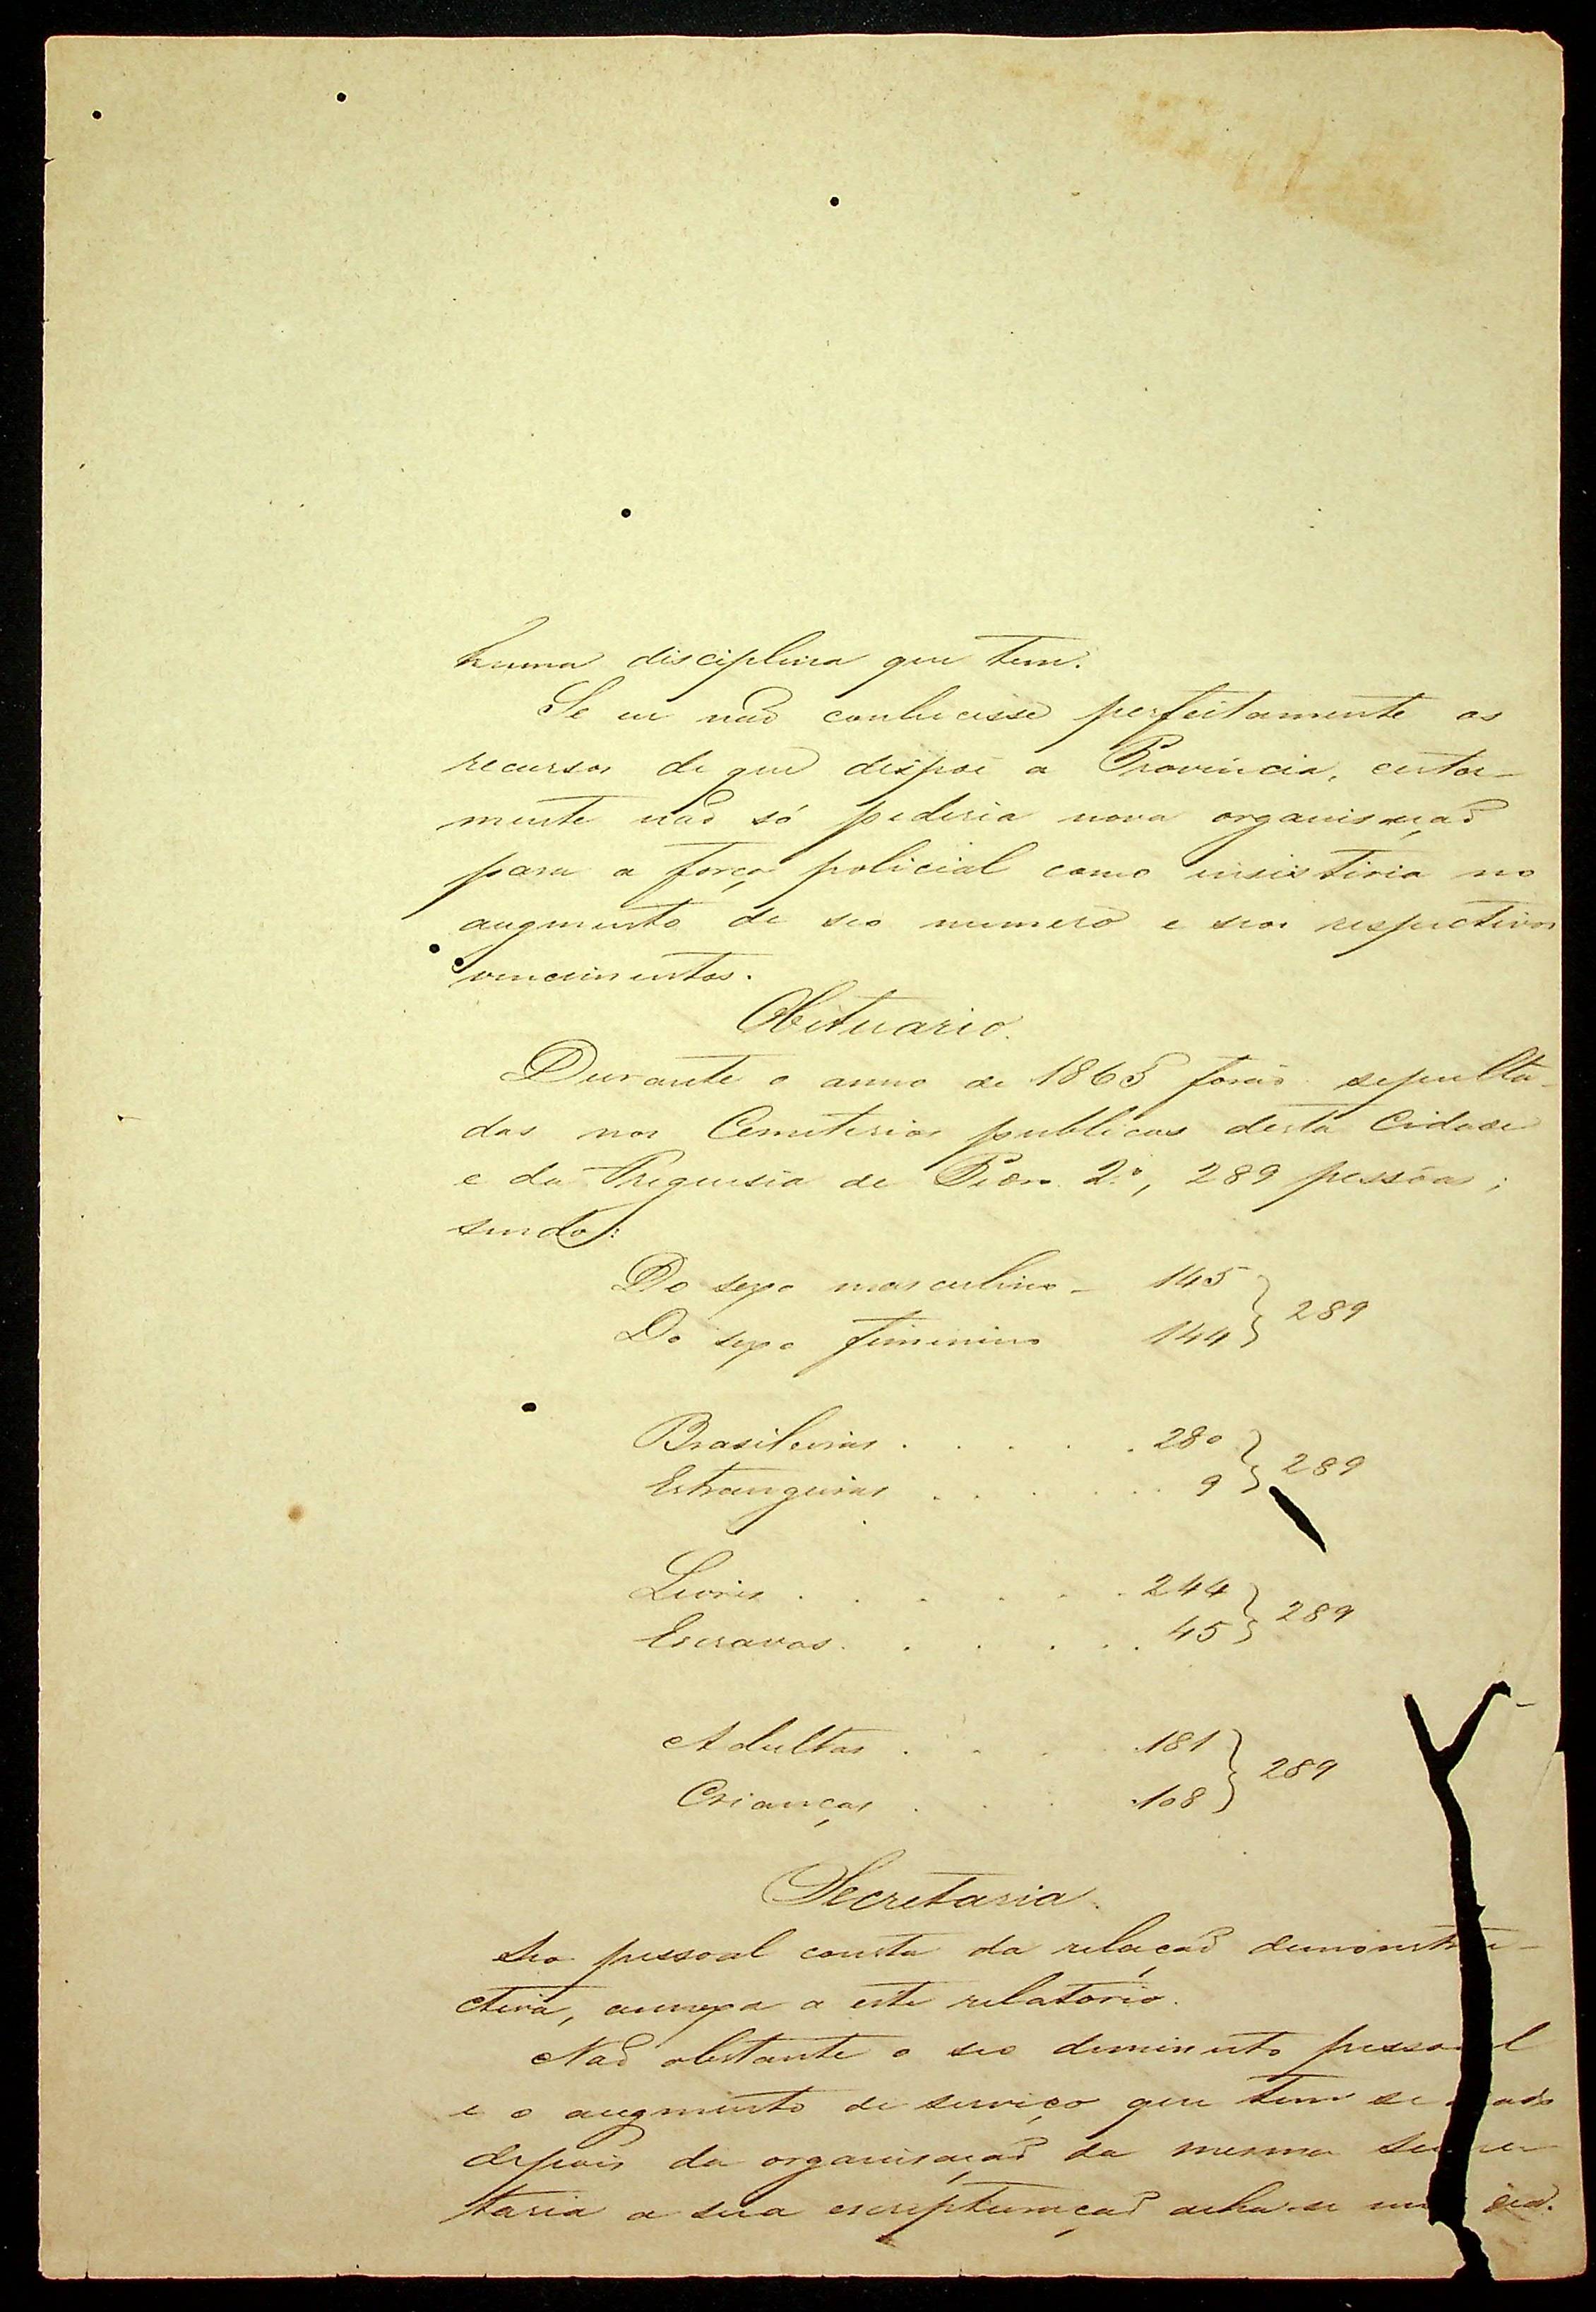 huma disciplina que tem.
Se eu não conhecesse perfeitamente os
recursos de que dispoe a Provincia, certa-
mente não só pederia nova organisação
para a força policial como insistiria no
augmento de seo numero e seos respectivos
vencimentos.
Obituario.
Durante o anno de 1865 forão sepulta-
das nos Cemeterios publicos desta Cidade
e da Freguesia de Pedro 2.º, 289 pessôas;
sendo:
Do sexo masculino - 145
Do sexo feminino 144 } 289
Brasileiros . . . . . 280
Estrangeiros . . . . . 9 } 289
Livres . . . . . 244
Escravos . . . . . 45 } 289
Adultos . . . . 181
Crianças . . . . 108 } 289
Secretaria.
Seo pessoal consta da relação demonstra-
ctiva, annexa a este relatorio.
Não obstante o seo deminuto pessoal
e o augmento de serviço que tem se dado
depois da organisação da mesma Secre
taria a sua escripturação acha-se em dia.